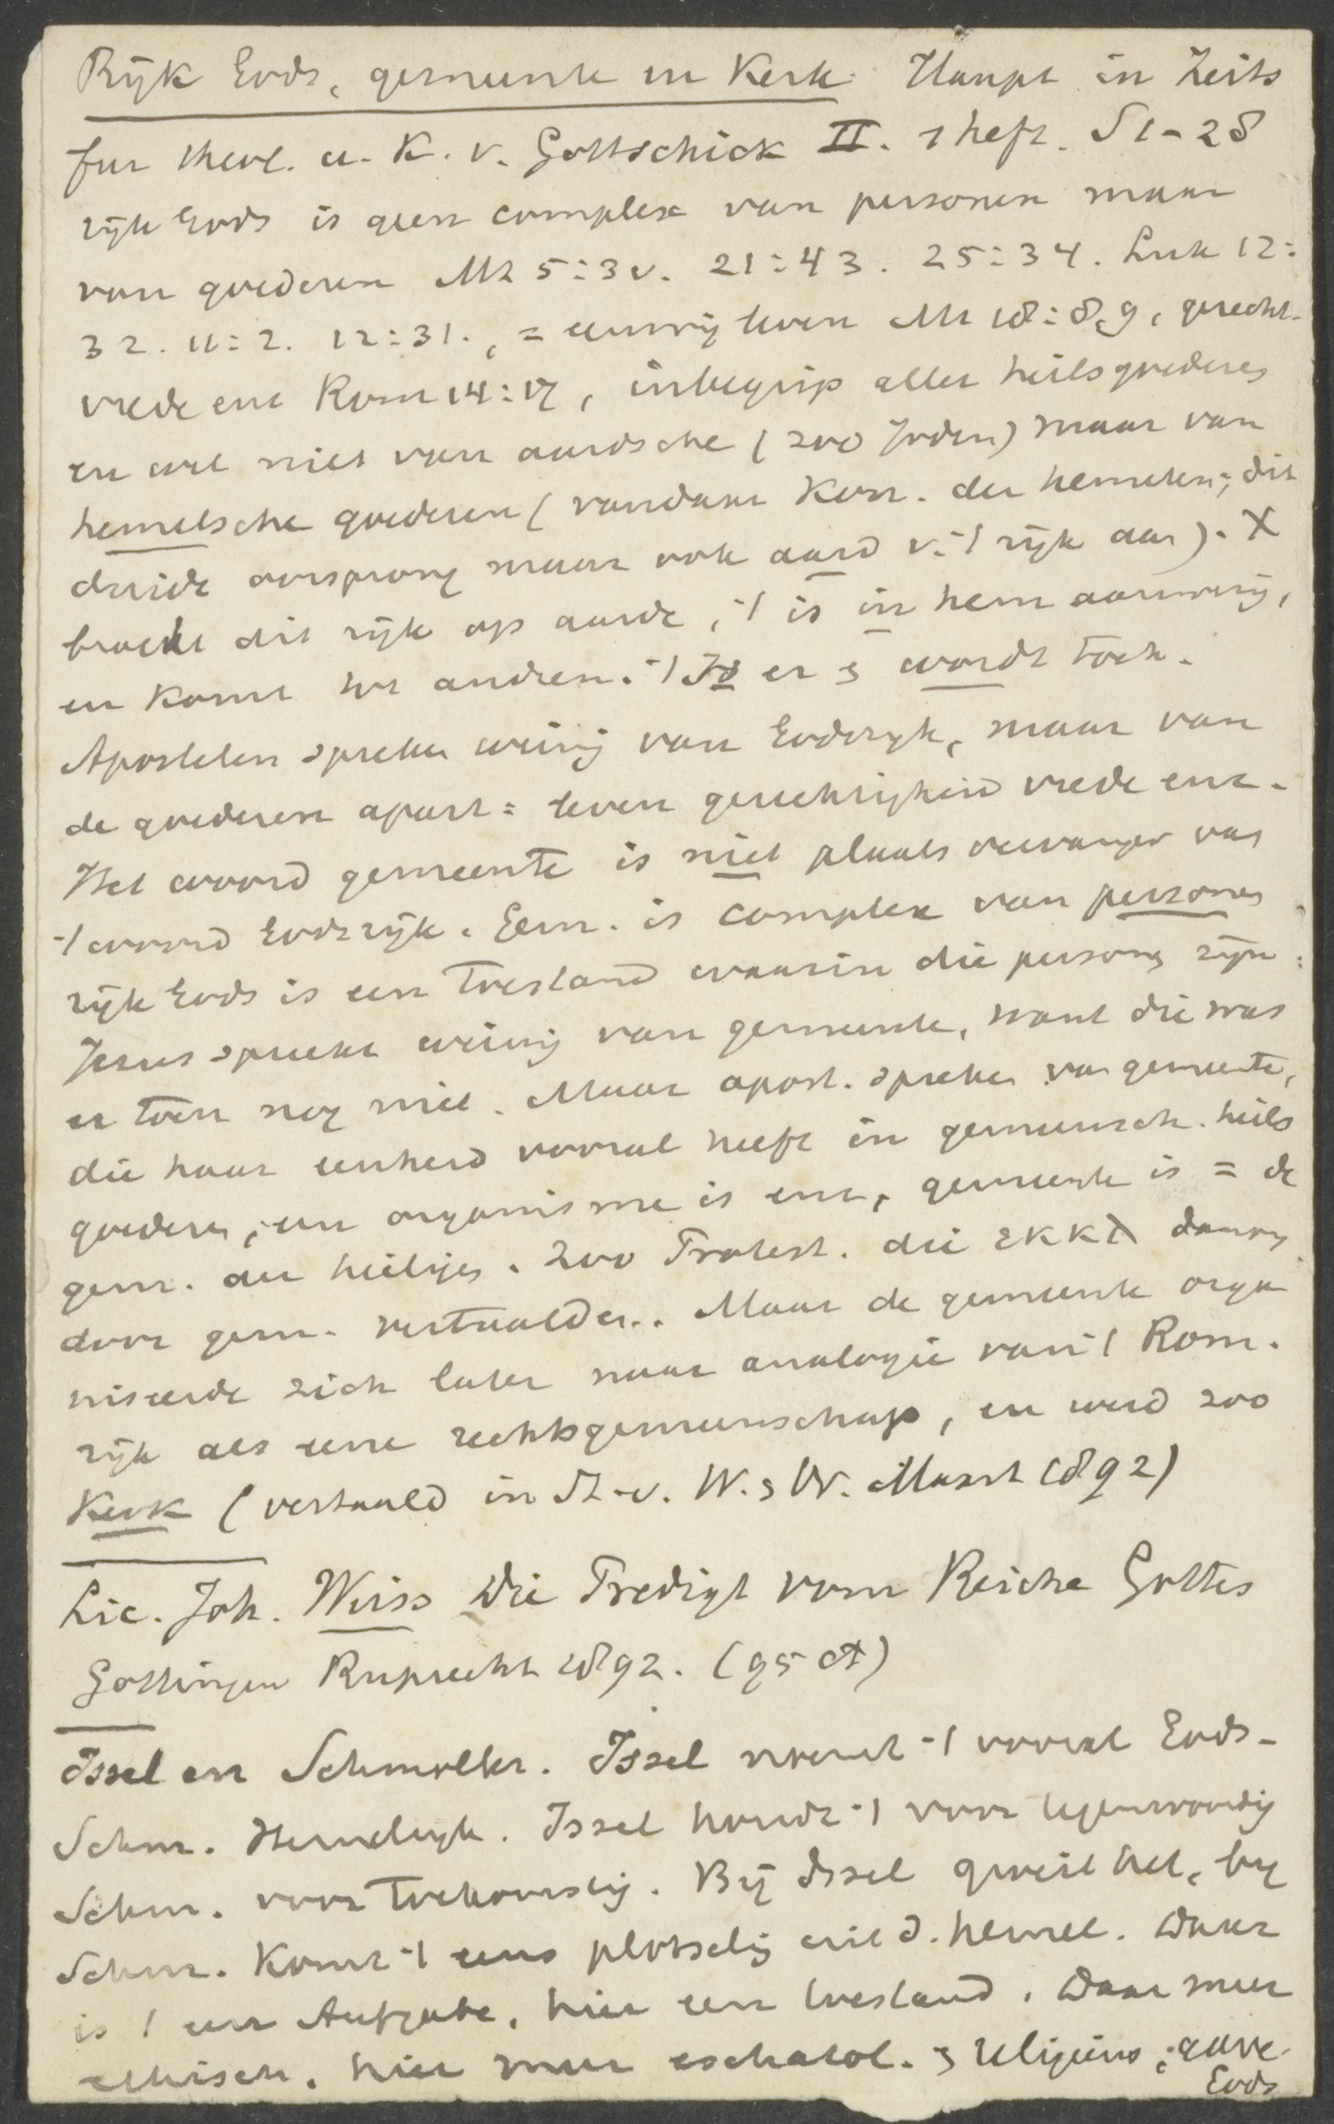 Rijk Gods, gemeente en Kerk. Haupt in Zeits
fur theol. u. K. v. Gottschick II. 1 heft. S 1-28
rijk Gods is geen complex van personen maar
van goederen Mt 5:3v. 21:43. 25:34. Luk 12:
32. 11:2. 12:31., = eeuwig leven Mt 18:8,9, gerecht.
vrede enz Rom 14:17, inbegrip aller heilsgoederen
en wel niet van aardsche (zoo Joden) maar van
hemelsche goederen (vandaar Kon. der hemelen; dit
duidt oorsprong maar ook aard v. 't rijk aan). X
bracht dit rijk op aarde, 't is in hem aanwezig,
en komt tot andren. 't Is er en wordt toch.
Apostelen spreken weinig van Godsrijk, maar van
de goederen apart = leven gerechtigheid vrede enz.
Het woord gemeente is niet plaatsvervanger van
't woord Godsrijk. Gem. is complex van personen
rijk Gods is een toestand waarin die personen zijn:
Jezus spreekt weinig van gemeente, want die was
er toen nog niet. Maar apost. spreken van gemeente,
die haar eenheid vooral heeft in gemeensch. heils
goederen, een organisme is enz, gemeente is = de
gem. der heiligen. Zoo Protest. die εκκλ daarom
door gem. vertaalden.. Maar de gemeente orga
niseerde zich later naar analogie van 't Rom.
rijk als eene rechtsgemeenschap, en werd zoo
Kerk (vertaald in St. v. W. en Vr. Maart 1892)
Lic. Joh. Weiss Die Predigt vom Reiche Gottes
Gottingen Ruprecht 1892. (95 ct)
Issel en Schmoller. Issel noemt 't vooral Gods-
Schm. Hemelrijk. Issel houdt 't voor tegenwoordig
Schm. voor toekomstig. Bij Issel groeit het, by
Schm. komt 't eens plotselig uit d. hemel. Daar
is 't een Aufgabe, hier een toestand. Daar meer
ethisch, hier meer eschatol. en religieus, gave
Gods